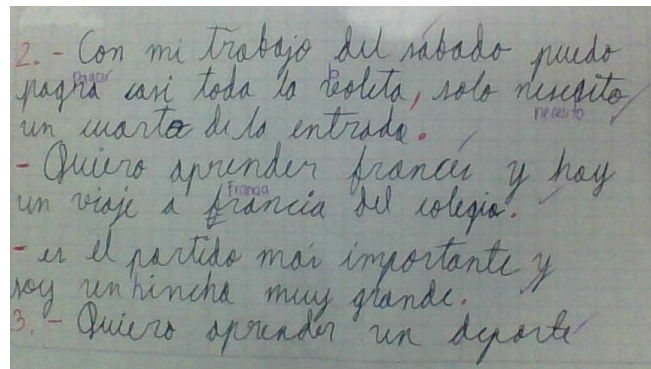 2. - Con mi trabajo del sábado puedo
pagar
pagra casi toda la b reoleta, solo nesesito
necesito
un cuarto de la entrada.
- Quiero aprender francés y hay
Francia
un viaje a francia del colegio.
- es el partido más importante y
soy un hincha muy grande.
3. - Quiero aprender un deporte